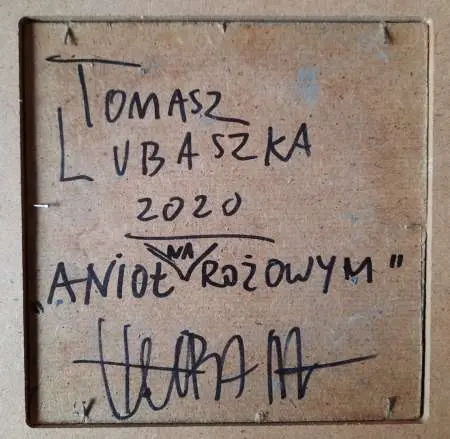 TOMASZ
LUBASZKA
2020
„ANIOŁ NA ROŻOWYM"